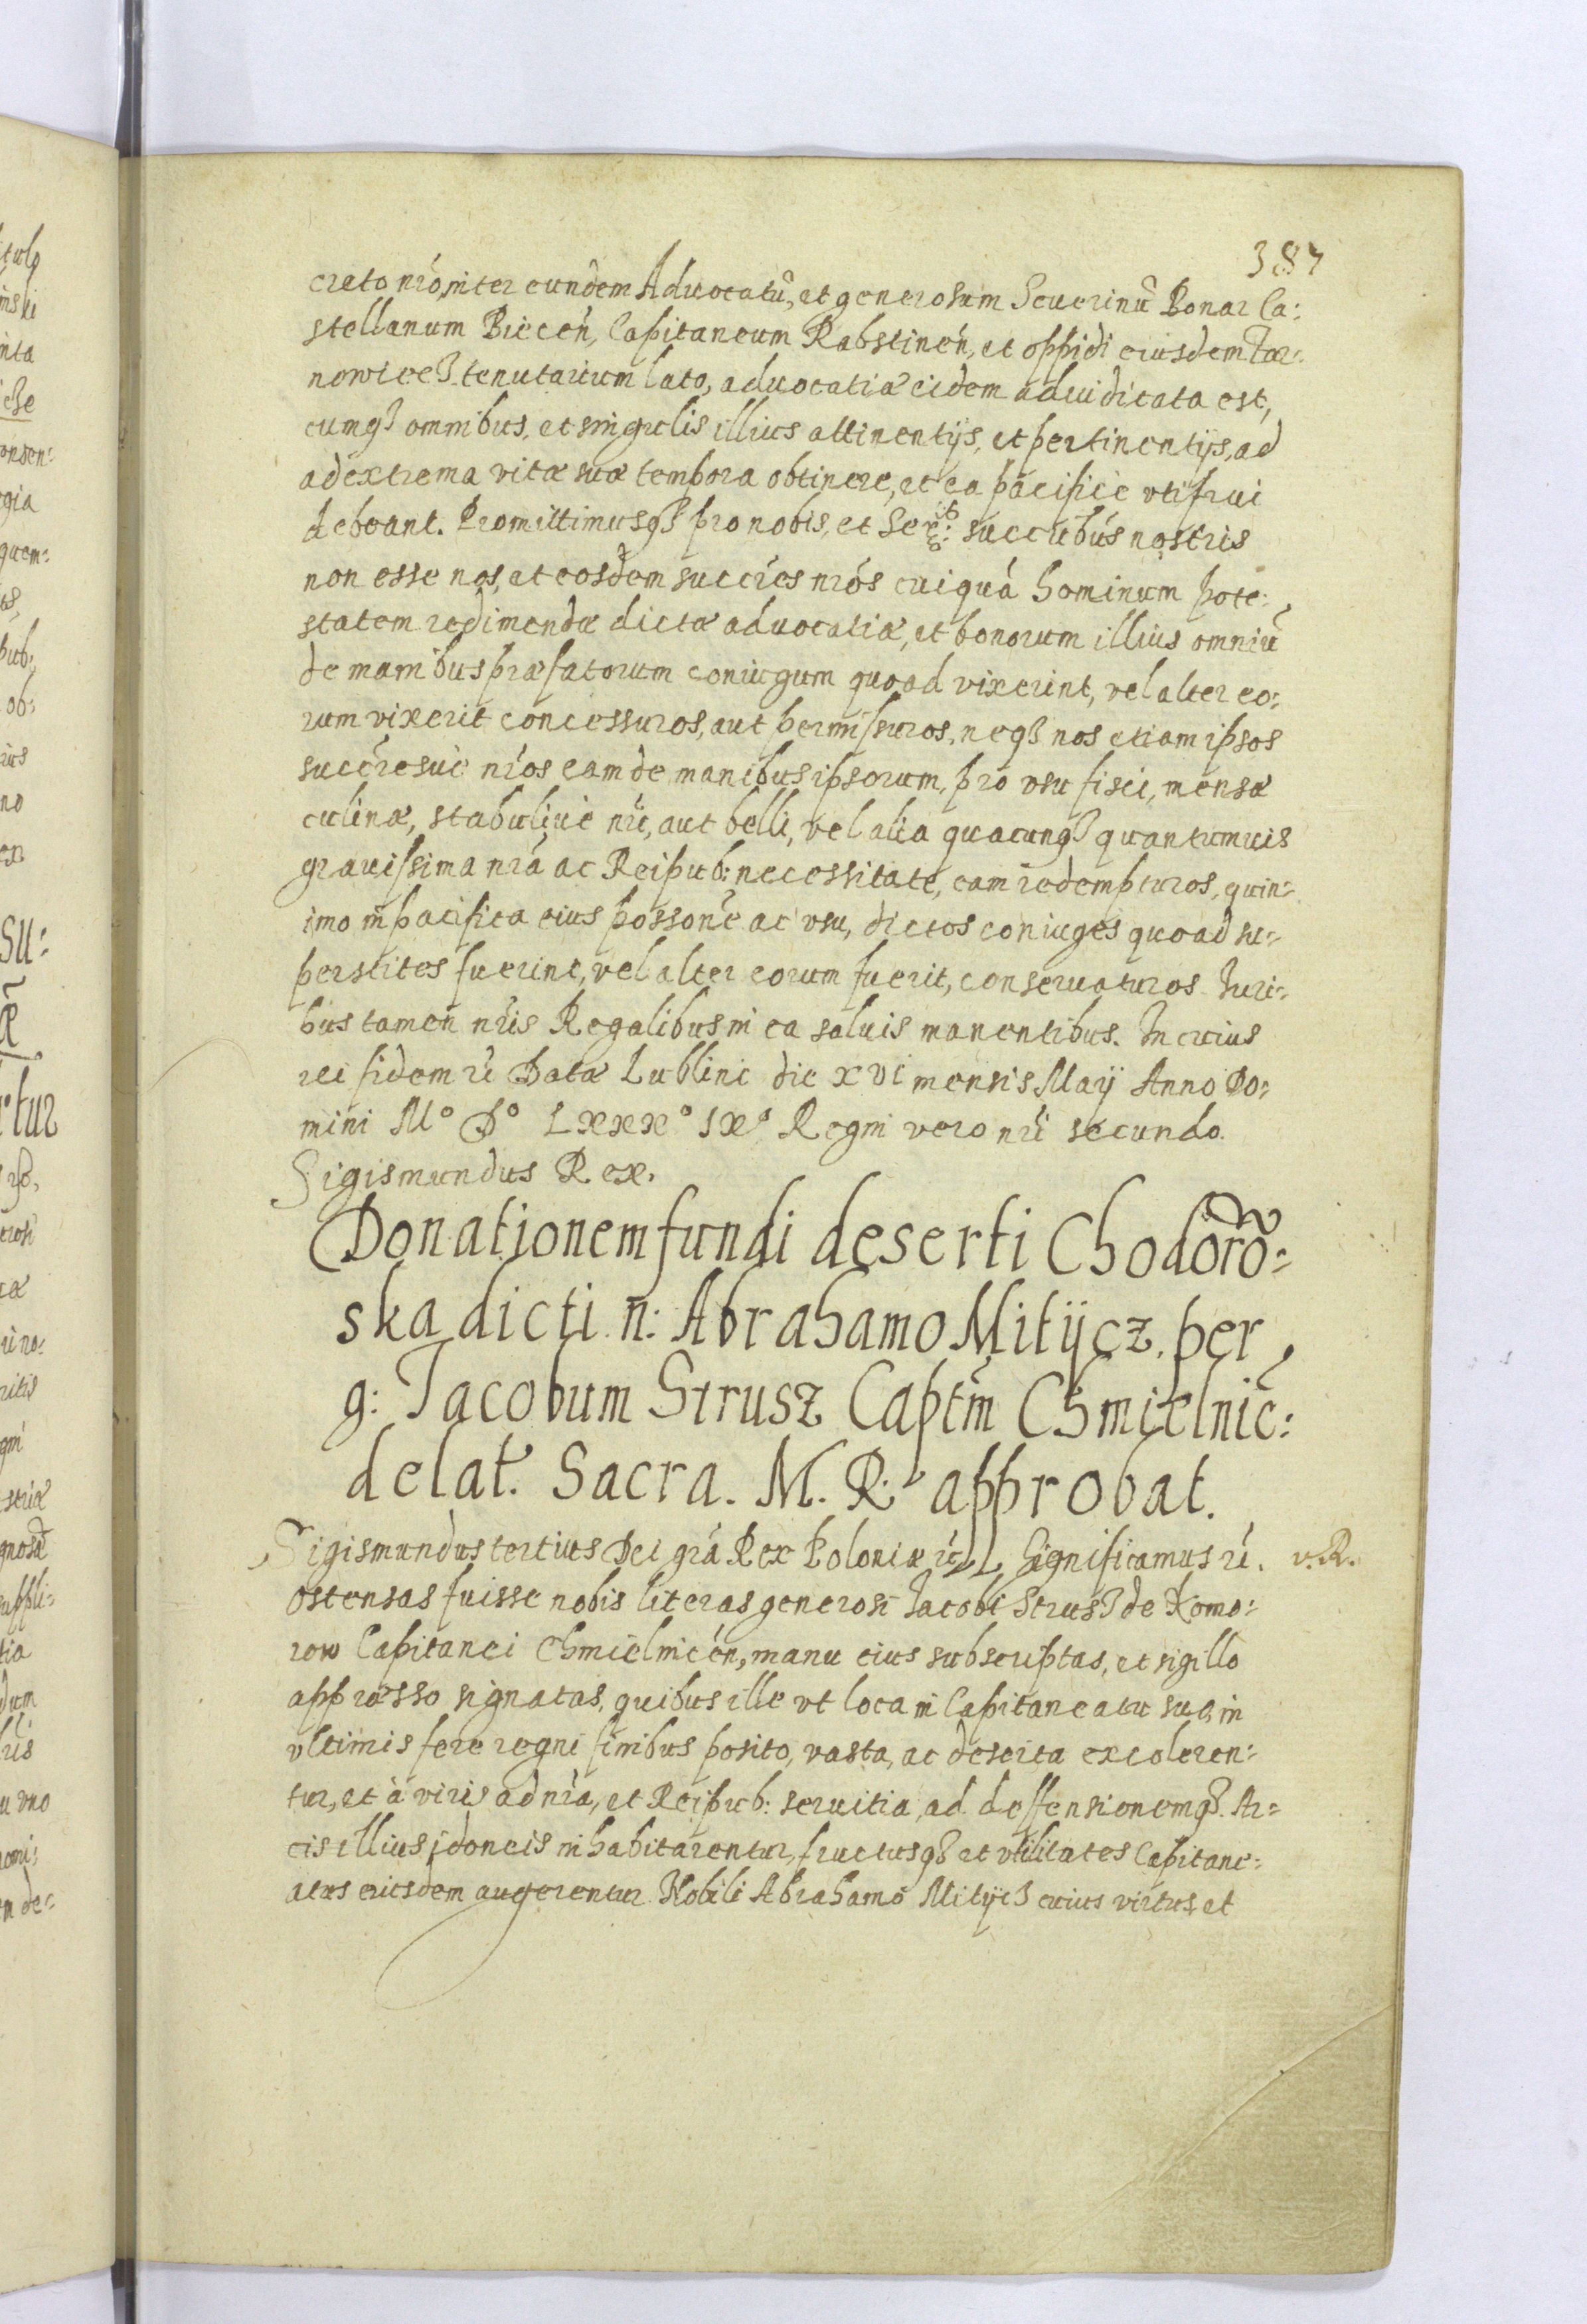 387
creto nro, inter eundem Aduocatũ, et generosum Seuerinũ Bonar Ca:
stellanum Biecen̄, Capitaneum Rabstinen̄, et oppidi eiusdem Tar:
nowiecz tenutarium lato, aduocatiæ eidem adiudicata est,
cumqȝ omnibus, et singulis illius attinentijs, et pertinentijs, ad
ad extrema vitæ suæ tempora obtinere, et ea pacificè vti frui
debeant. Promittimusqȝ pro nobis, et Ser: succribus nostris
non esse nos, et eosdem succres nr̄os cuiquā hominum pote:
statem redimendæ dictæ aduocatiæ, et bonorum illius omniũ
de manibus præfatorum coniugum quoad vixerint, vel alter eo:
rum vixerit concessuros, aut permissuros, neqȝ nos etiam ipsos
succresuè nr̄os eam de manibus ipsorum, pro vsu fisci, mensæ
culinæ, stabuliuè nr̄i, aut belli, vel alia quacunqȝ quantumuis
grauissima nr̄a ac Reipub: necessitate, eam redempturos, quin:
imo in pacifica eius possone ac vsu, dictos coniuges quoad su:
perstites fuerint, vel alter eorum fuerit, conseruaturos. Iuri:
bus tamen nr̄is Regalibus in ea saluis manentibus. In cuius
rei fidem rc̄ Datæ Lublini die XVI mensis Maij Anno Do:
mini M° D° LXXX° IX° Regni vero nr̄i secundo.
Sigismundus Rex.
Donationem fundi deserti Chodoro:
ska dicti n: Abrahamo Mitijcz per
g: Jacobum Strusz Captm̄ Chmielnic̄:
delat. Sacra. M. R. approbat.
Sigismundus tertius Dei grā Rex Poloniæ rc̄ Significamus rc̄. v.R.
ostensas fuisse nobis literas generosi Jacobi Strusȝ de Komo:
row Capitanei Chmielnicen̄, manu eius subscriptas, et sigillo
appræsso signatas, quibus ille vt loca in Capitaneatu suo, in
vltimis fere regni finibus posito, vasta, ac deserta excoleren:
tur, et à viris ad nr̄a, et Reipub: seruitia, ad deffensionemqȝ Ar:
cis illius idoneis inhabitarentur, fructusqȝ et vtilitates Capitane:
atus eiusdem augerentur Nobili Abrahamo Mitijcȝ cuius virtus et